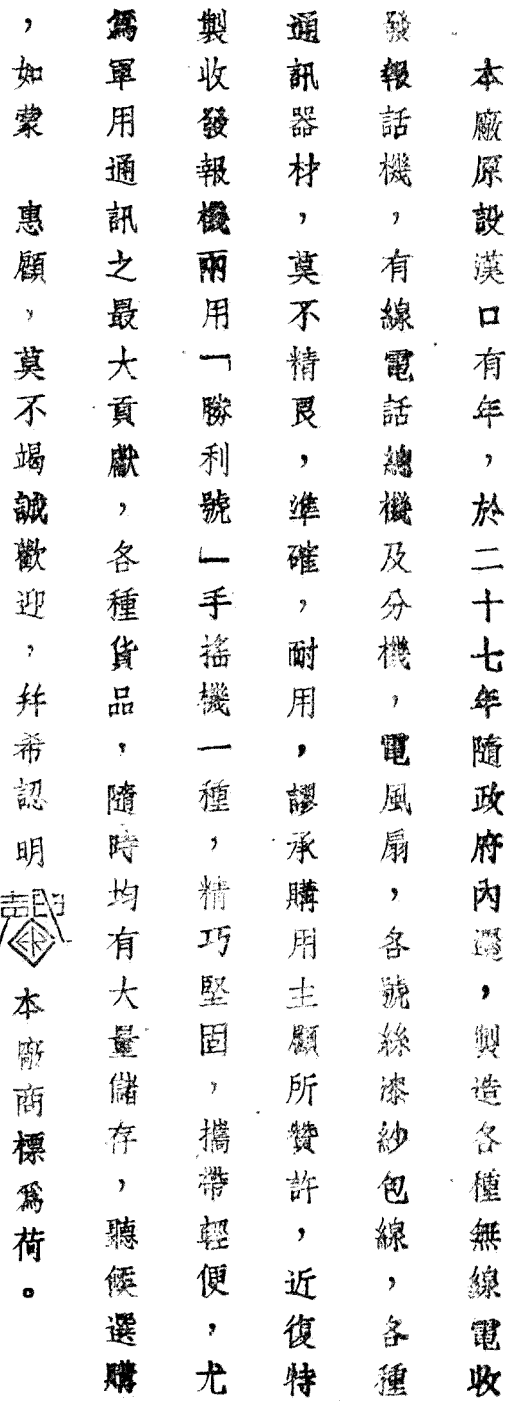 本廠原設漢口有年，於二十七年隨政府內遷，製造各種無線電收
發報話機，有線電話總機及分機，電風扇，各號絲漆紗包線，各種
通訊器材，莫不精良，準確，耐用，謬承購用主顧所贊許，近復特
製收發報機兩用「勝利號」手搖機一種，精巧堅固，攜帶輕便，尤
爲軍用通訊之最大貢獻，各種貨品，隨時均有大量儲存，聽候選購
，如蒙　惠顧，莫不竭誠歡迎，幷希認明　本廠商標爲荷。